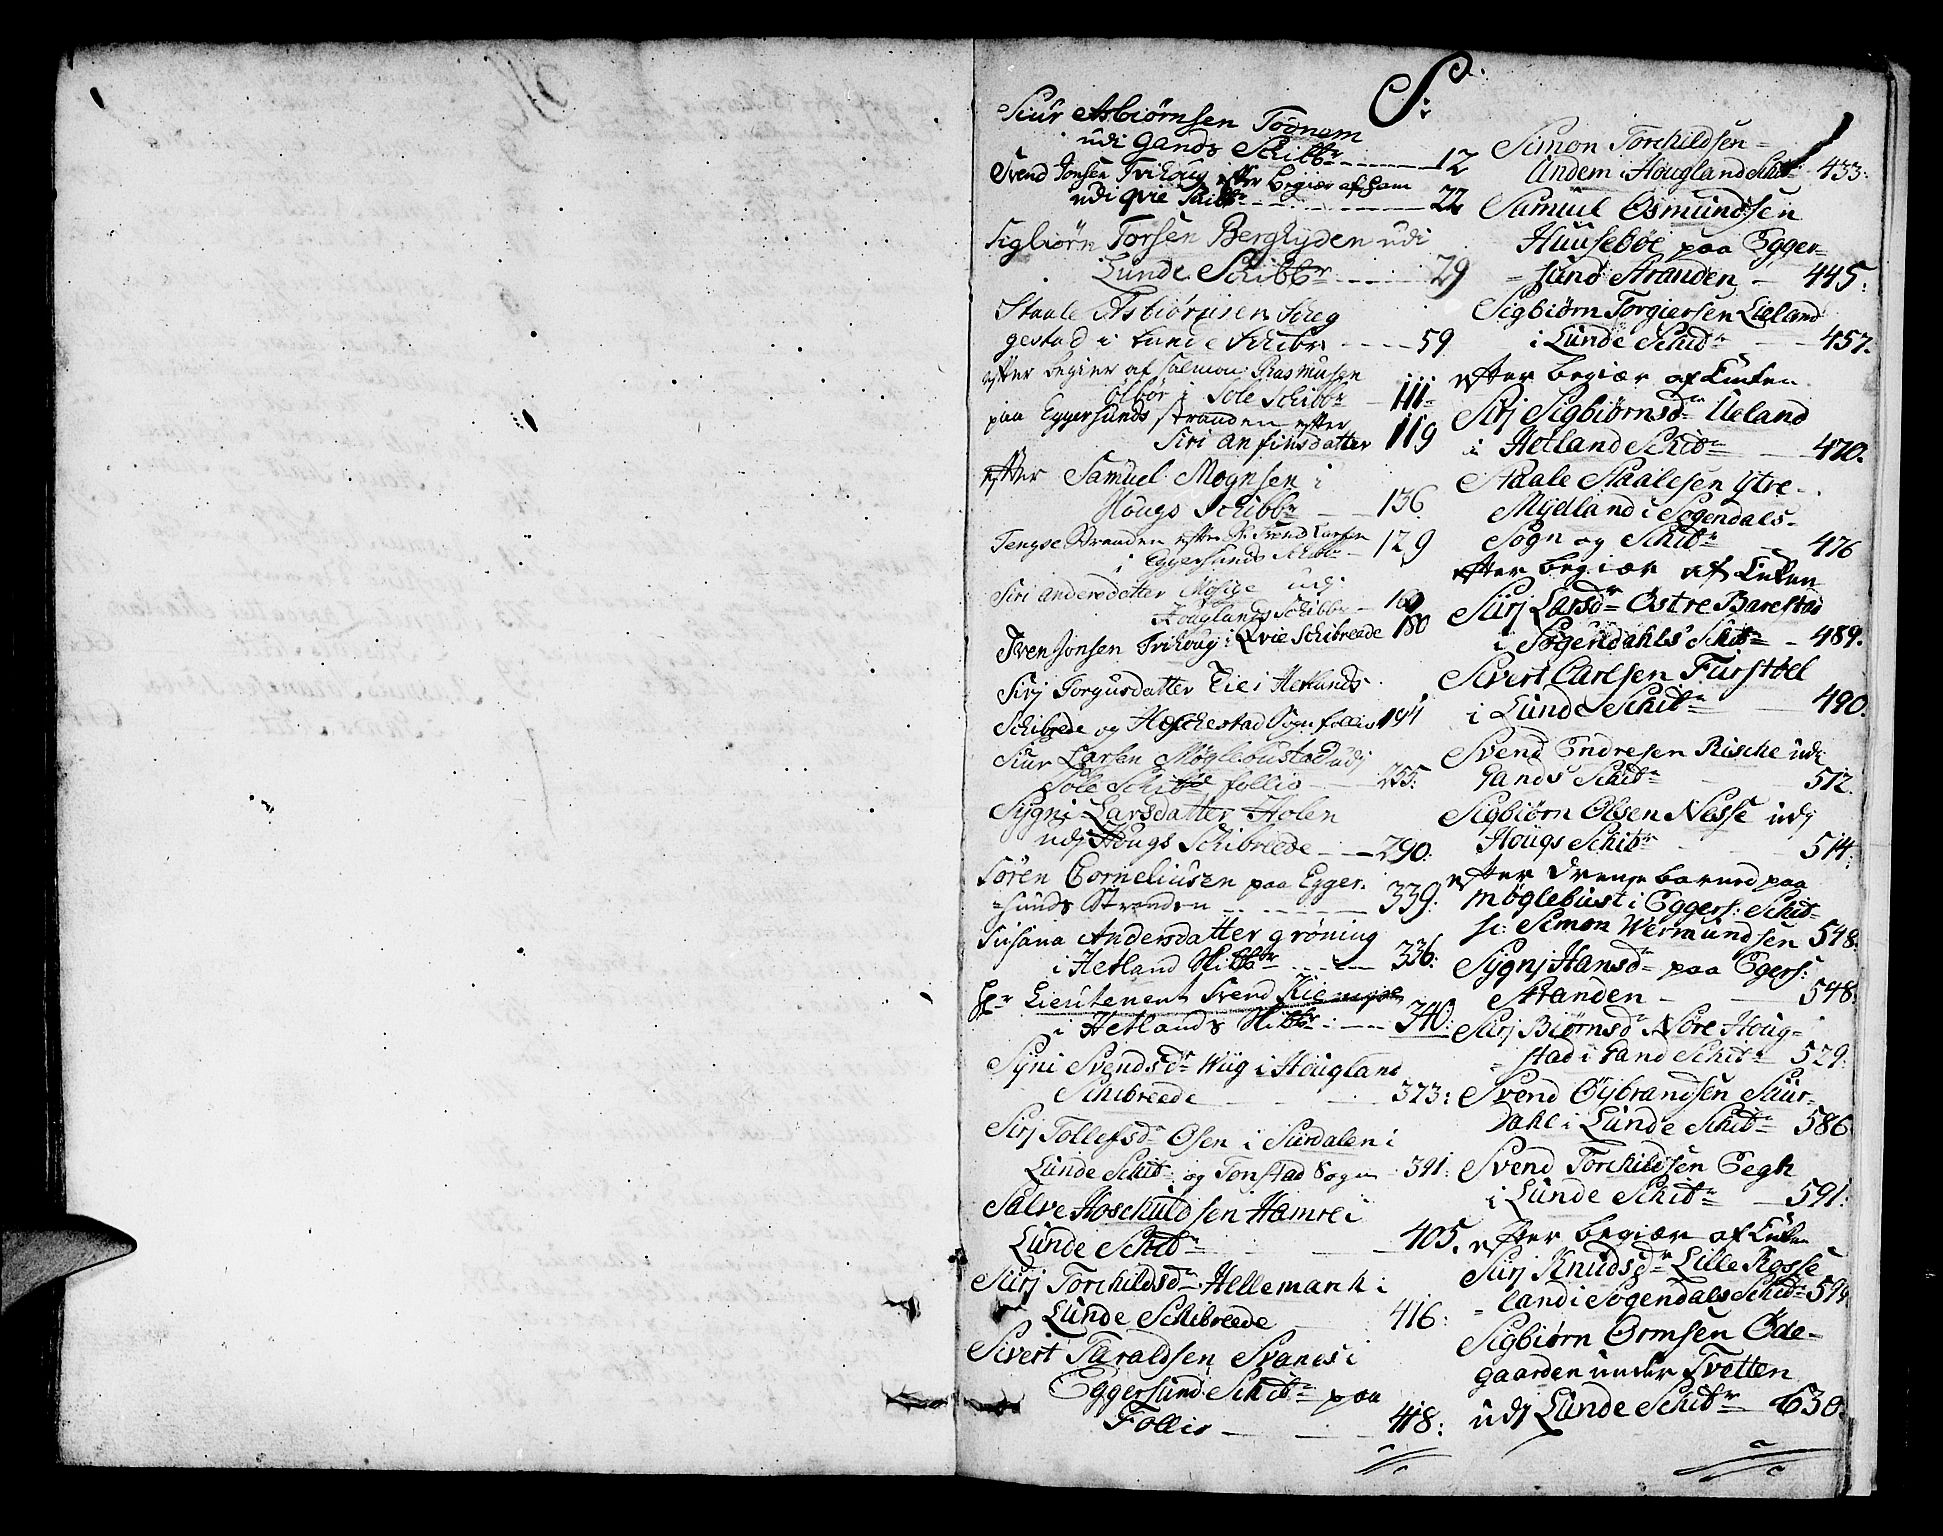 S:
Siur Asbiørnsen Tognem
udi Gands Schibbr 12
Svend Jonsen Trihoug efter begiær af ham
udi qvie Skibbr 22
Sigbiørn Torsen Berglyden udi
Lunde Schibbr 29
Staale Asbiørnsen Skeg
gestad i Lunde Schibr 59
efter begier af Salmon Rasmusen
ølbør i Sole Schibbr 111
paa Eggersunds stranden efter
Siri Anfinsdatter 119
efter Samuel Mognsen i
Hougs Schibbr 136
Tengse Stranden efter Svend Larsen
i Eggersunds Schibbr 129
Siri Andersdatter Mosige udi
Houglands Schibbr
Sven Jonsen Trihoug i Qvie Schibreede 180
Sirj Torgusdatter Eie i Hetlands
Schibrede og Heschestad Sogn follio 194
Siur Larsen Møglebustad udj
Sole Schibrd follio 255.
Sygni Larsdatter Holen
udj Hougs Schibreede 290.
Søren Corneliusen paa Egger-
sunds Stranden 339:
Susana Andersdatter grøning
i Hetland Skibbr 336:
Hr Lieutenent Svend Kiempe
i Hetlands Skibbr 340:
Syni Svendsdr Wiig i Hougland
Schibreede 373:
Sirj Tollefsdr Osen i Surdalen i
Lunde Schib: og Tonstad Sogn 391:
Salve Hoschuldsen Hamre i
Lunde Schibr 405.
Siirj Torchildsdr Hellemanh i
Lunde Schibreede 416:
Sivert Taraldsen Svanes i
Eggersund Schibr paa
Follio 418:
Simon Torchildsen
Andem i Hougland Schibr 433:
Samuel Osmundsen
Huusebøe paa Egger-
sund Stranden 445.
Sigbiørn Torgiersen Lieland
i Lunde Schibr 457.
efter begiær af Enken
Sirj Sigbiørnsdr Ueland
i Hetland Schibr 470.
Staale Staalesen Ytre-
Mydland i Sogendals-
Sogn og Schibr 476
efter begiær af Enken
Siirj Larsdr Østre Barestad
i Sogendahls Schibr 489.
Sivert Carlsen Furstøel
i Lunde Schibr 490.
Svend Endresen Rische udi
Gands Schibr 512.
Sigbiørn Olsen Nesse udj
Hougs Schibr 514:
efter Drenge barned paa
Møglebust i Eggers: Schib-
sc: Simon Wermundsen 548:
Sygnj Hansdr paa Egers:
Stranden 548:
Siirj Biørnsdr Nore Houg-
stad i Gand Schibr 529:
Svend Øysbrandsen Suur-
dahl i Lunde Schibr 586
Svend Torchildsen Eegh
i Lunde Schibr 591:
efter begiær af Enken
Siirj Knudsdr Lille Rosse
land i Sogendals Schibr 599
Sigbiørn Ormsen Øde-
gaarden under Tvetten
udj Lunde Schibr 630.